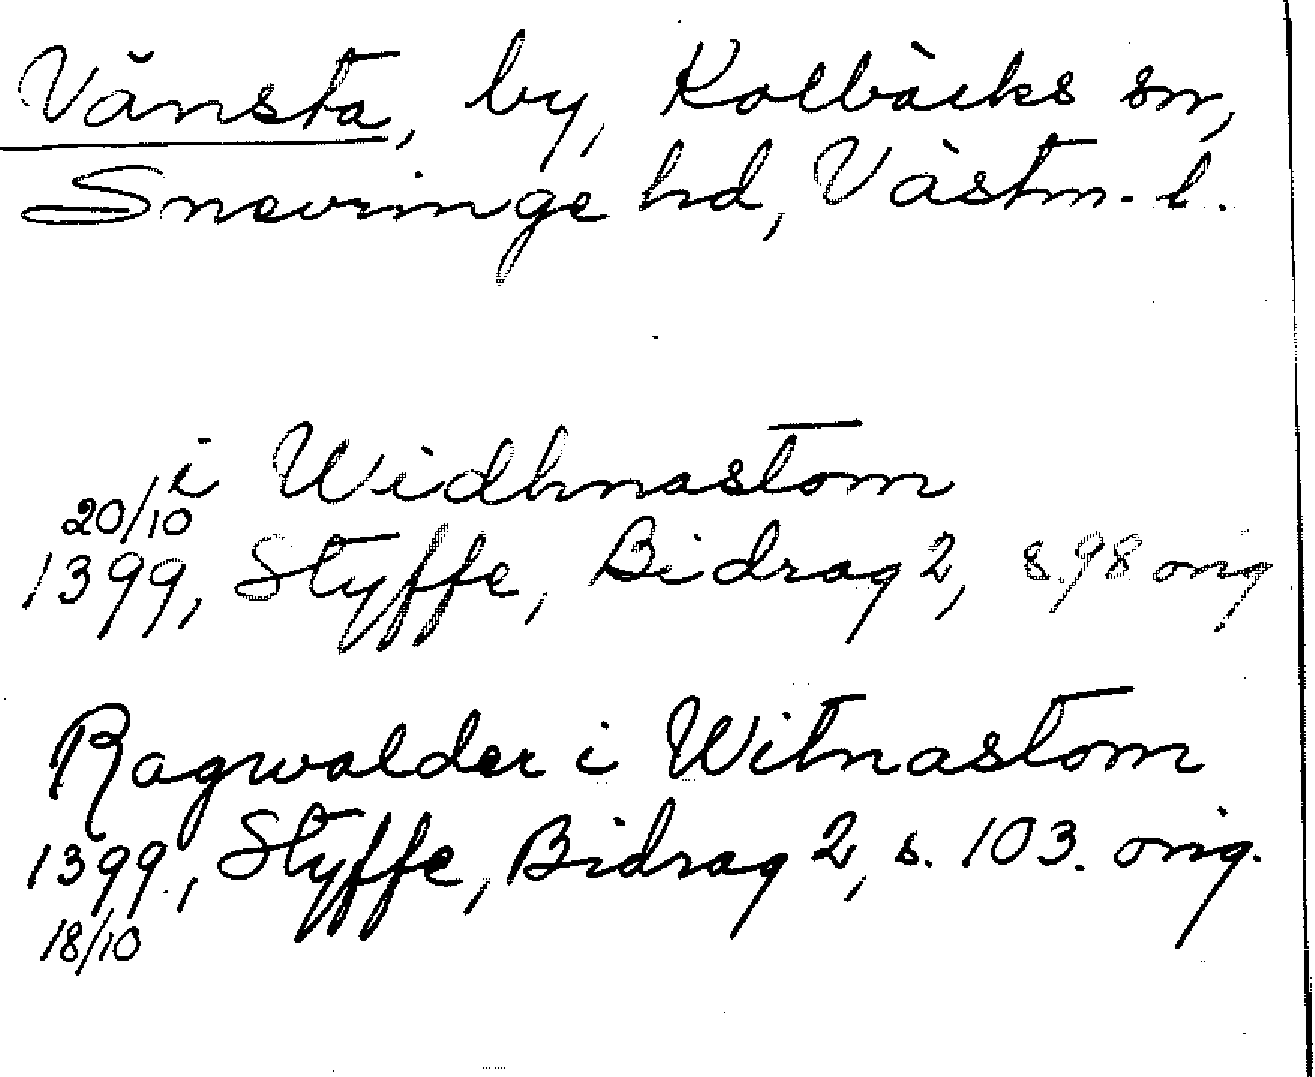 Vänsta, by, Kolbäcks sn,
Snevringe hd, Västm. l.
i Widhnastom
20/10
1399, Styffe, Bidrag 2, s.98 orig
Ragwalder i Witnastom
1399, Styffe, Bidrag 2, s. 103. orig.
18/10